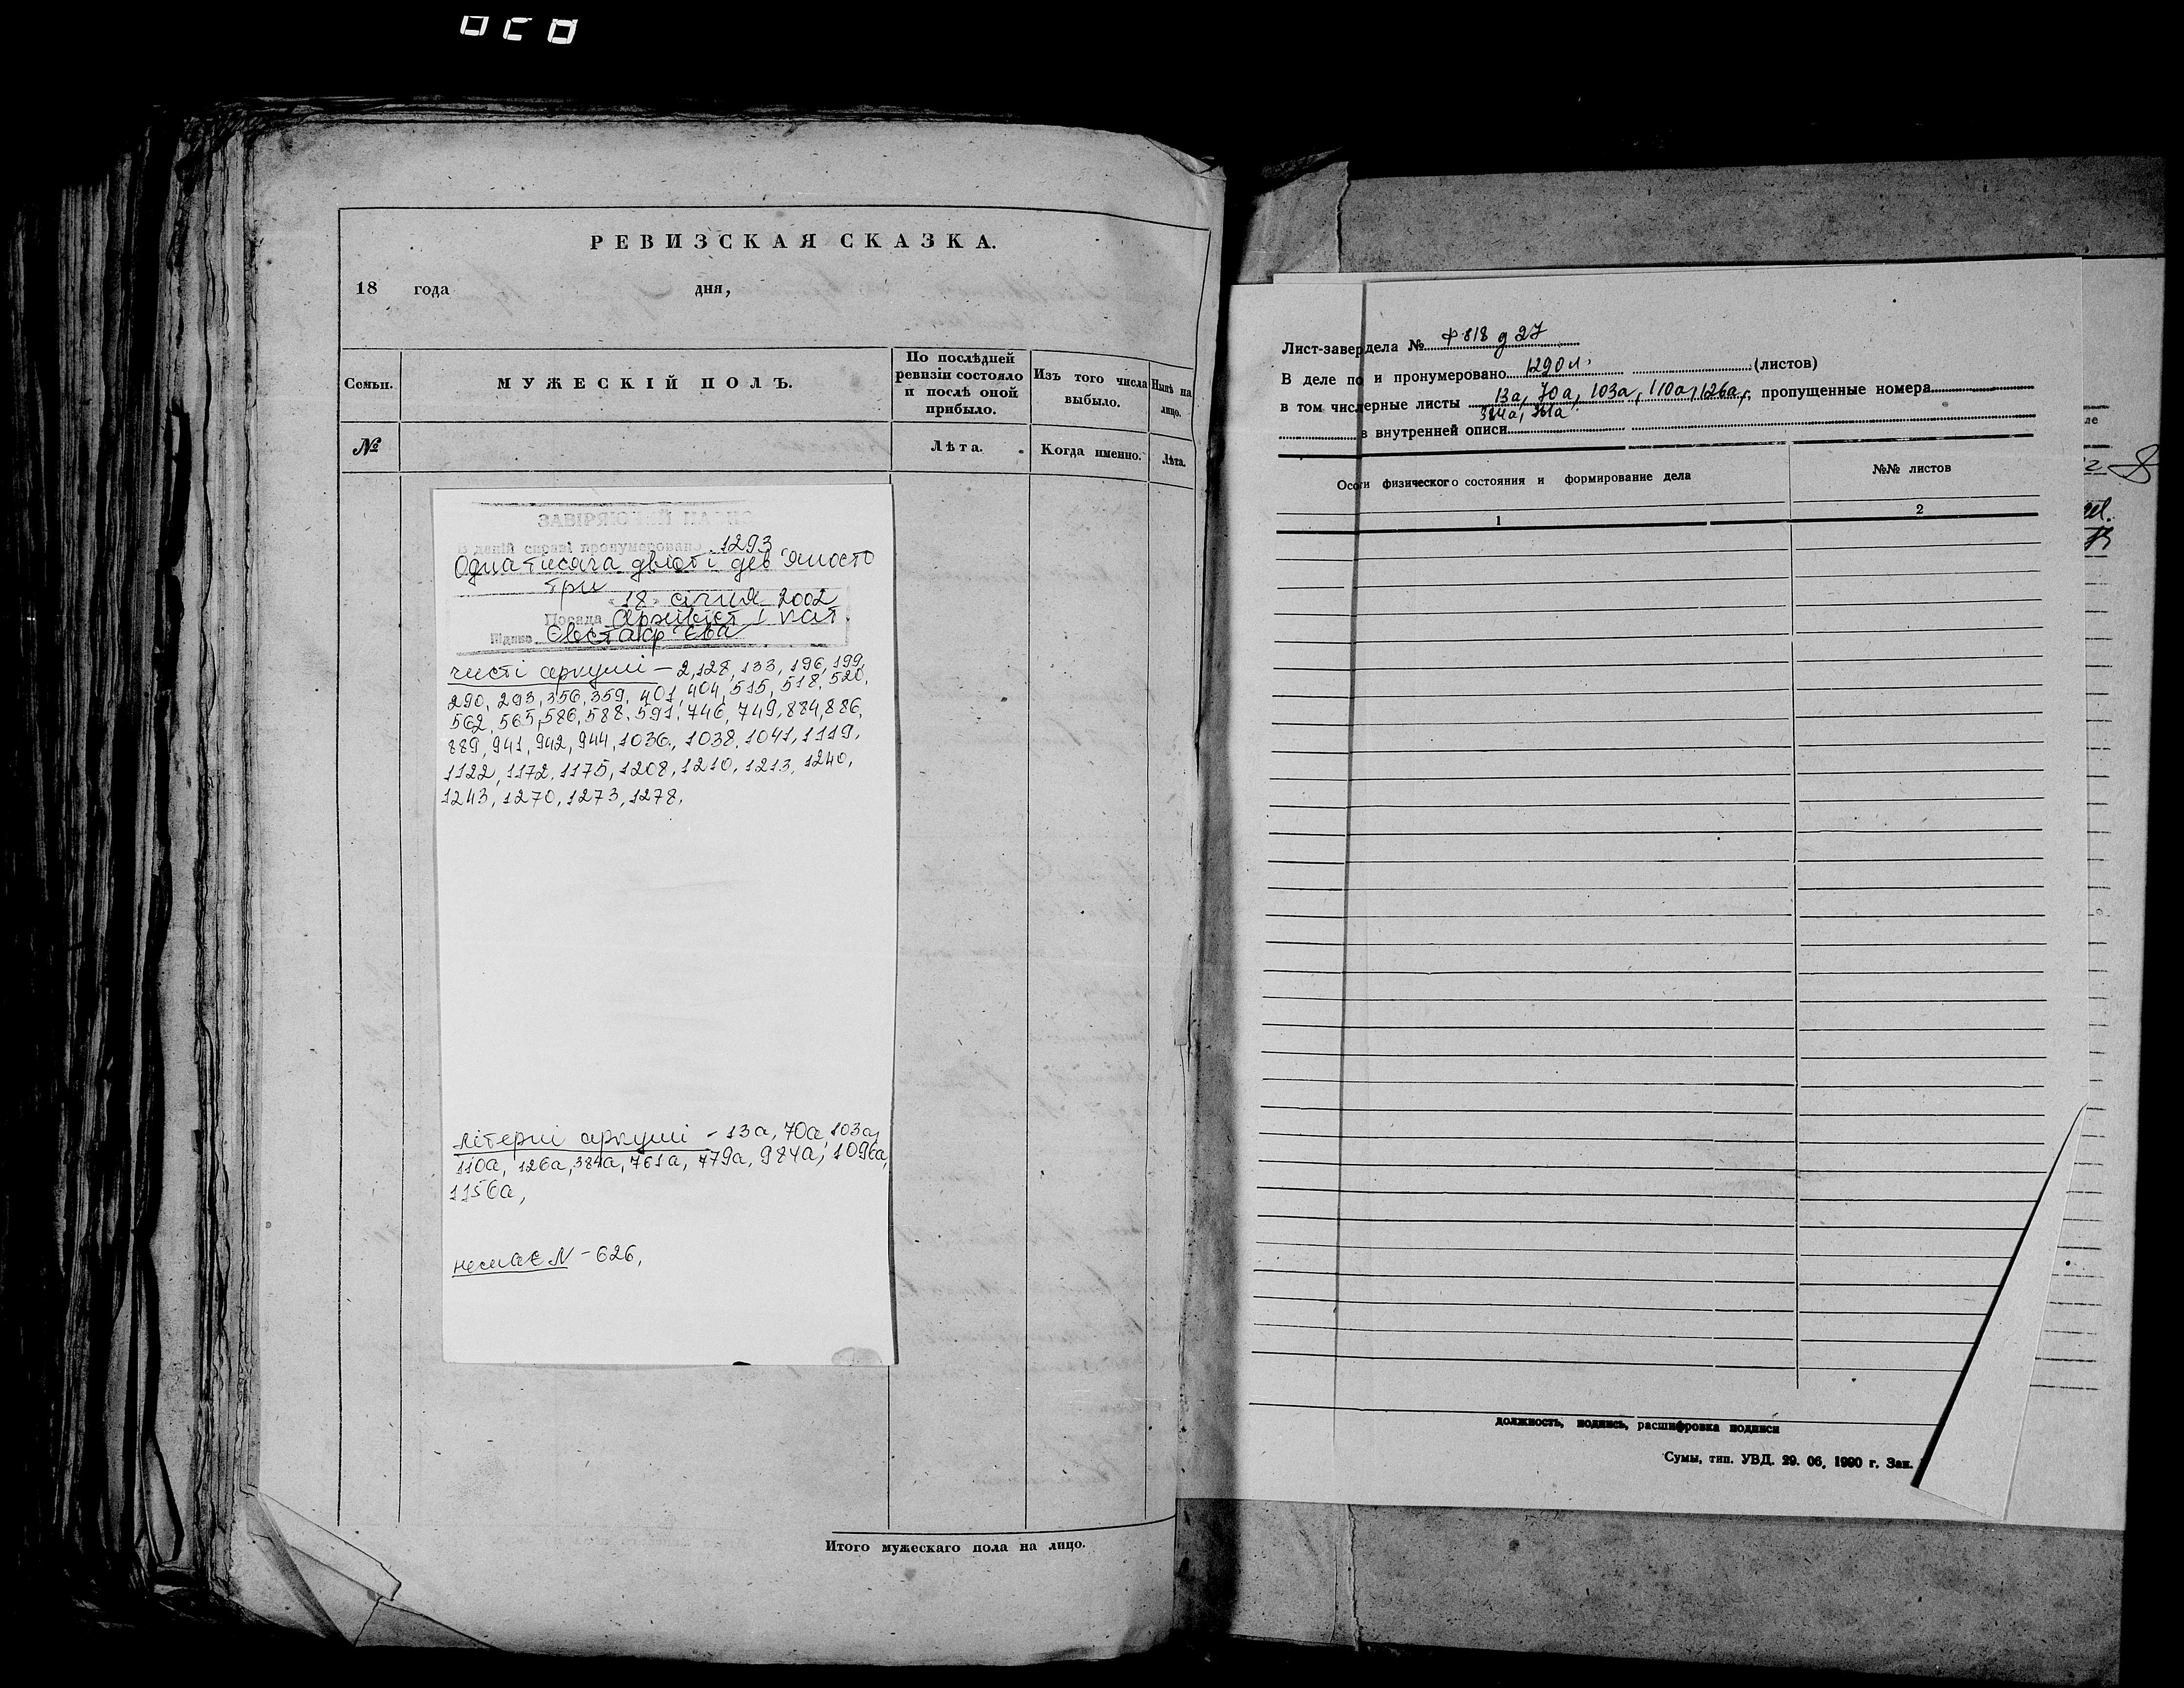 РЕВИЗСКАЯ СКАЗКА.
18 года дня,
Семьи.
МУЖЕСКІЙ ПОЛЪ.
По послѣдней
ревизіи состояло
и послѣ оной
прибыло.
Изъ того числа
выбыло.
Нынѣ на
лицо.
№
Лѣта.
Когда именно.
Лѣта.
ЗАВІРЯЮЧИЙ
В даній справі пронумеровано 1293
Одна тисяча двісті дев'яносто
три
18 січня 2002
Посада Архівіст І кат.
Підпис Євстаф'єва
чисті аркуші – 2, 128, 133, 196, 199,
290, 293, 356, 359, 401, 404, 515, 518, 520,
562, 565, 586, 588, 591, 746, 749, 884, 886,
889, 941, 942, 944, 1036, 1038, 1041, 1119,
1122, 1172, 1175, 1208, 1210, 1213, 1240,
1243, 1270, 1273, 1278.
літерні аркуші – 13а, 70а, 103а,
110а, 126а, 384а, 761а, 779а, 984а, 1096а,
1156а,
немає N – 626,
Итого мужескаго пола на лицо.
Лист-завер дела № Ф 818 д 27
В деле по и пронумеровано 1290 л. (листов)
в том чис лерные листы 13а, 70а, 103а, 110а, 126а, пропущенные номера
384а,
в внутренней описи
Осо и физического состояния и формирование дела
№№ листов
1
2
должность, подпись, расшифровка подписи
Сумы, тип. УВД. 29. 06. 1990 г. Зак.